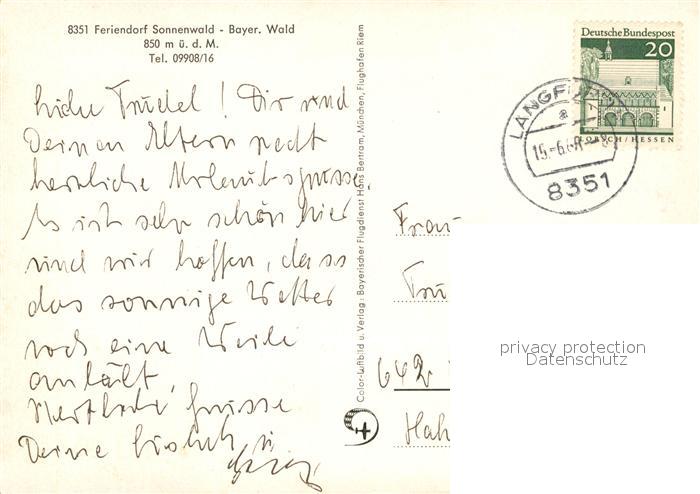 8351 Feriendorf Sonnenwald - Bayer. Wald
850 m ü. d. M.
Tel. 09908/16
Liebe Trudel! Dir und
Deinen Eltern recht
herzliche Urlaubsgrüsse.
Es ist sehr schön hier
und wir hoffen, dass
das sonnige Wetter
noch eine Weile
anhält.
Herzliche Grüsse
Deine
Color-Luftbild u. Verlag: Bayerischer Flugdienst Hans Bertram, München, Flughafen Riem
Deutsche Bundespost
20
LORSCH/HESSEN
8351
Frau
Tru
642
Hah
privacy protection
Datenschutz